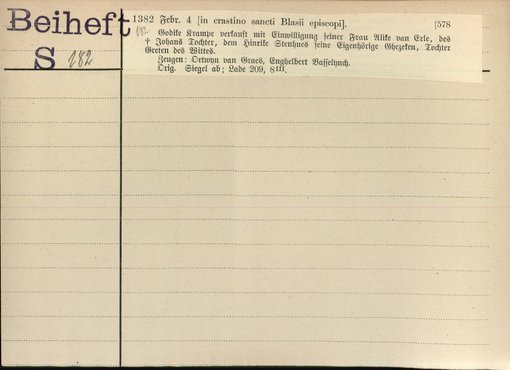 Beiheft
S 182
1382 Febr. 4 [in crastino sancti Blasii episcopi]. [578
182
Godike Krampe verkauft mit Einwilligung seiner Frau Alike van Erle, des
† Johans Tochter, dem Hinrike Stenhues seine Eigenhörige Ghezeken, Tochter
Greten des Wittes.
Zeugen: Ortwyn van Graes, Enghelbert Basselynch.
Orig. Siegel ab; Lade 209, 8III.